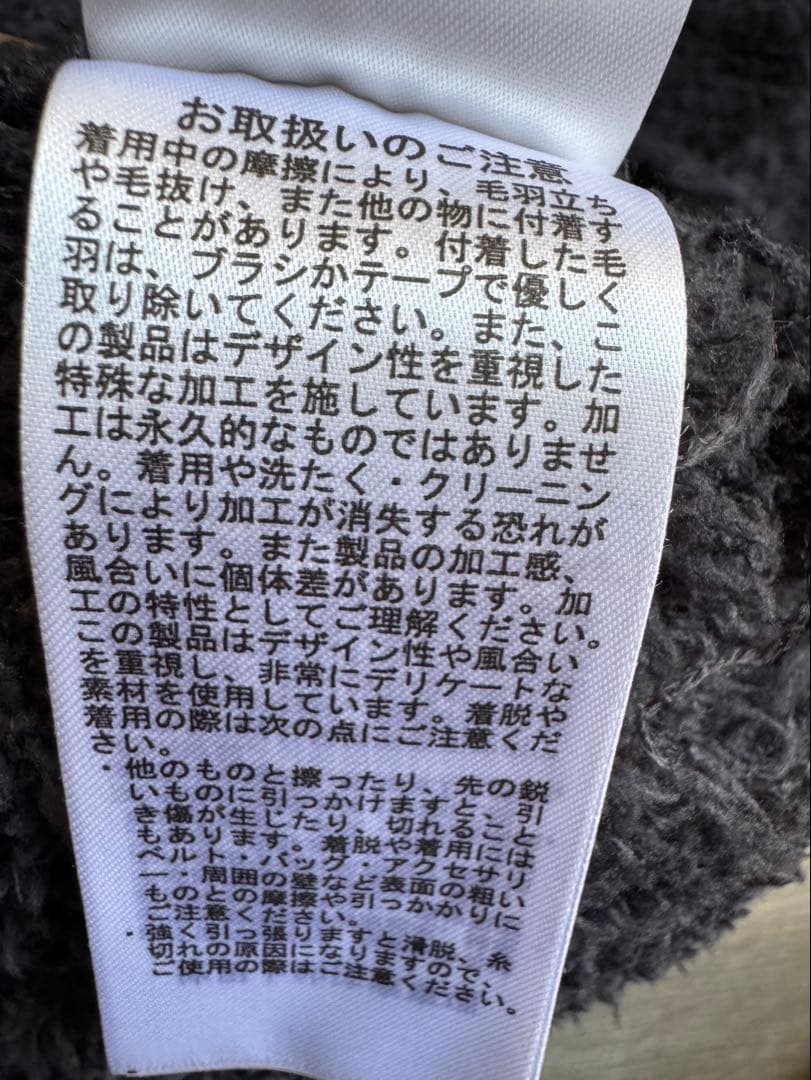 お取扱いのご注意
着用中の摩擦により、毛羽立ち
や毛抜け、また他の物に付着す
ることがあります。付着した毛
羽は、ブラシかテープで優しく
取り除いてください。また、こ
の製品はデザイン性を重視した
特殊な加工を施しています。加
工は永久的なものではありませ
ん。着用や洗たく・クリーニン
グにより加工が消失する恐れが
あります。また製品の加工感、
風合いに個体差があります。加
工の特性としてご理解ください。
この製品はデザイン性や風合い
を重視し、非常にデリケートな
素材を使用しています。着脱や
着用の際は次の点にご注意くだ
さい。
・他のものと擦ったり、先の鋭
いものに引っかけますと、引
き傷が生じたり、切れること
もあります。着脱や着用には
ベルト・バッグ・アクセサリ
ー・周囲の壁など表面の粗い
もの との摩擦や引っかかりに
ご注意ください。
・強く引っ張りますと滑脱、糸
切れの原因になりますので、
ご使用の際はご注意ください。